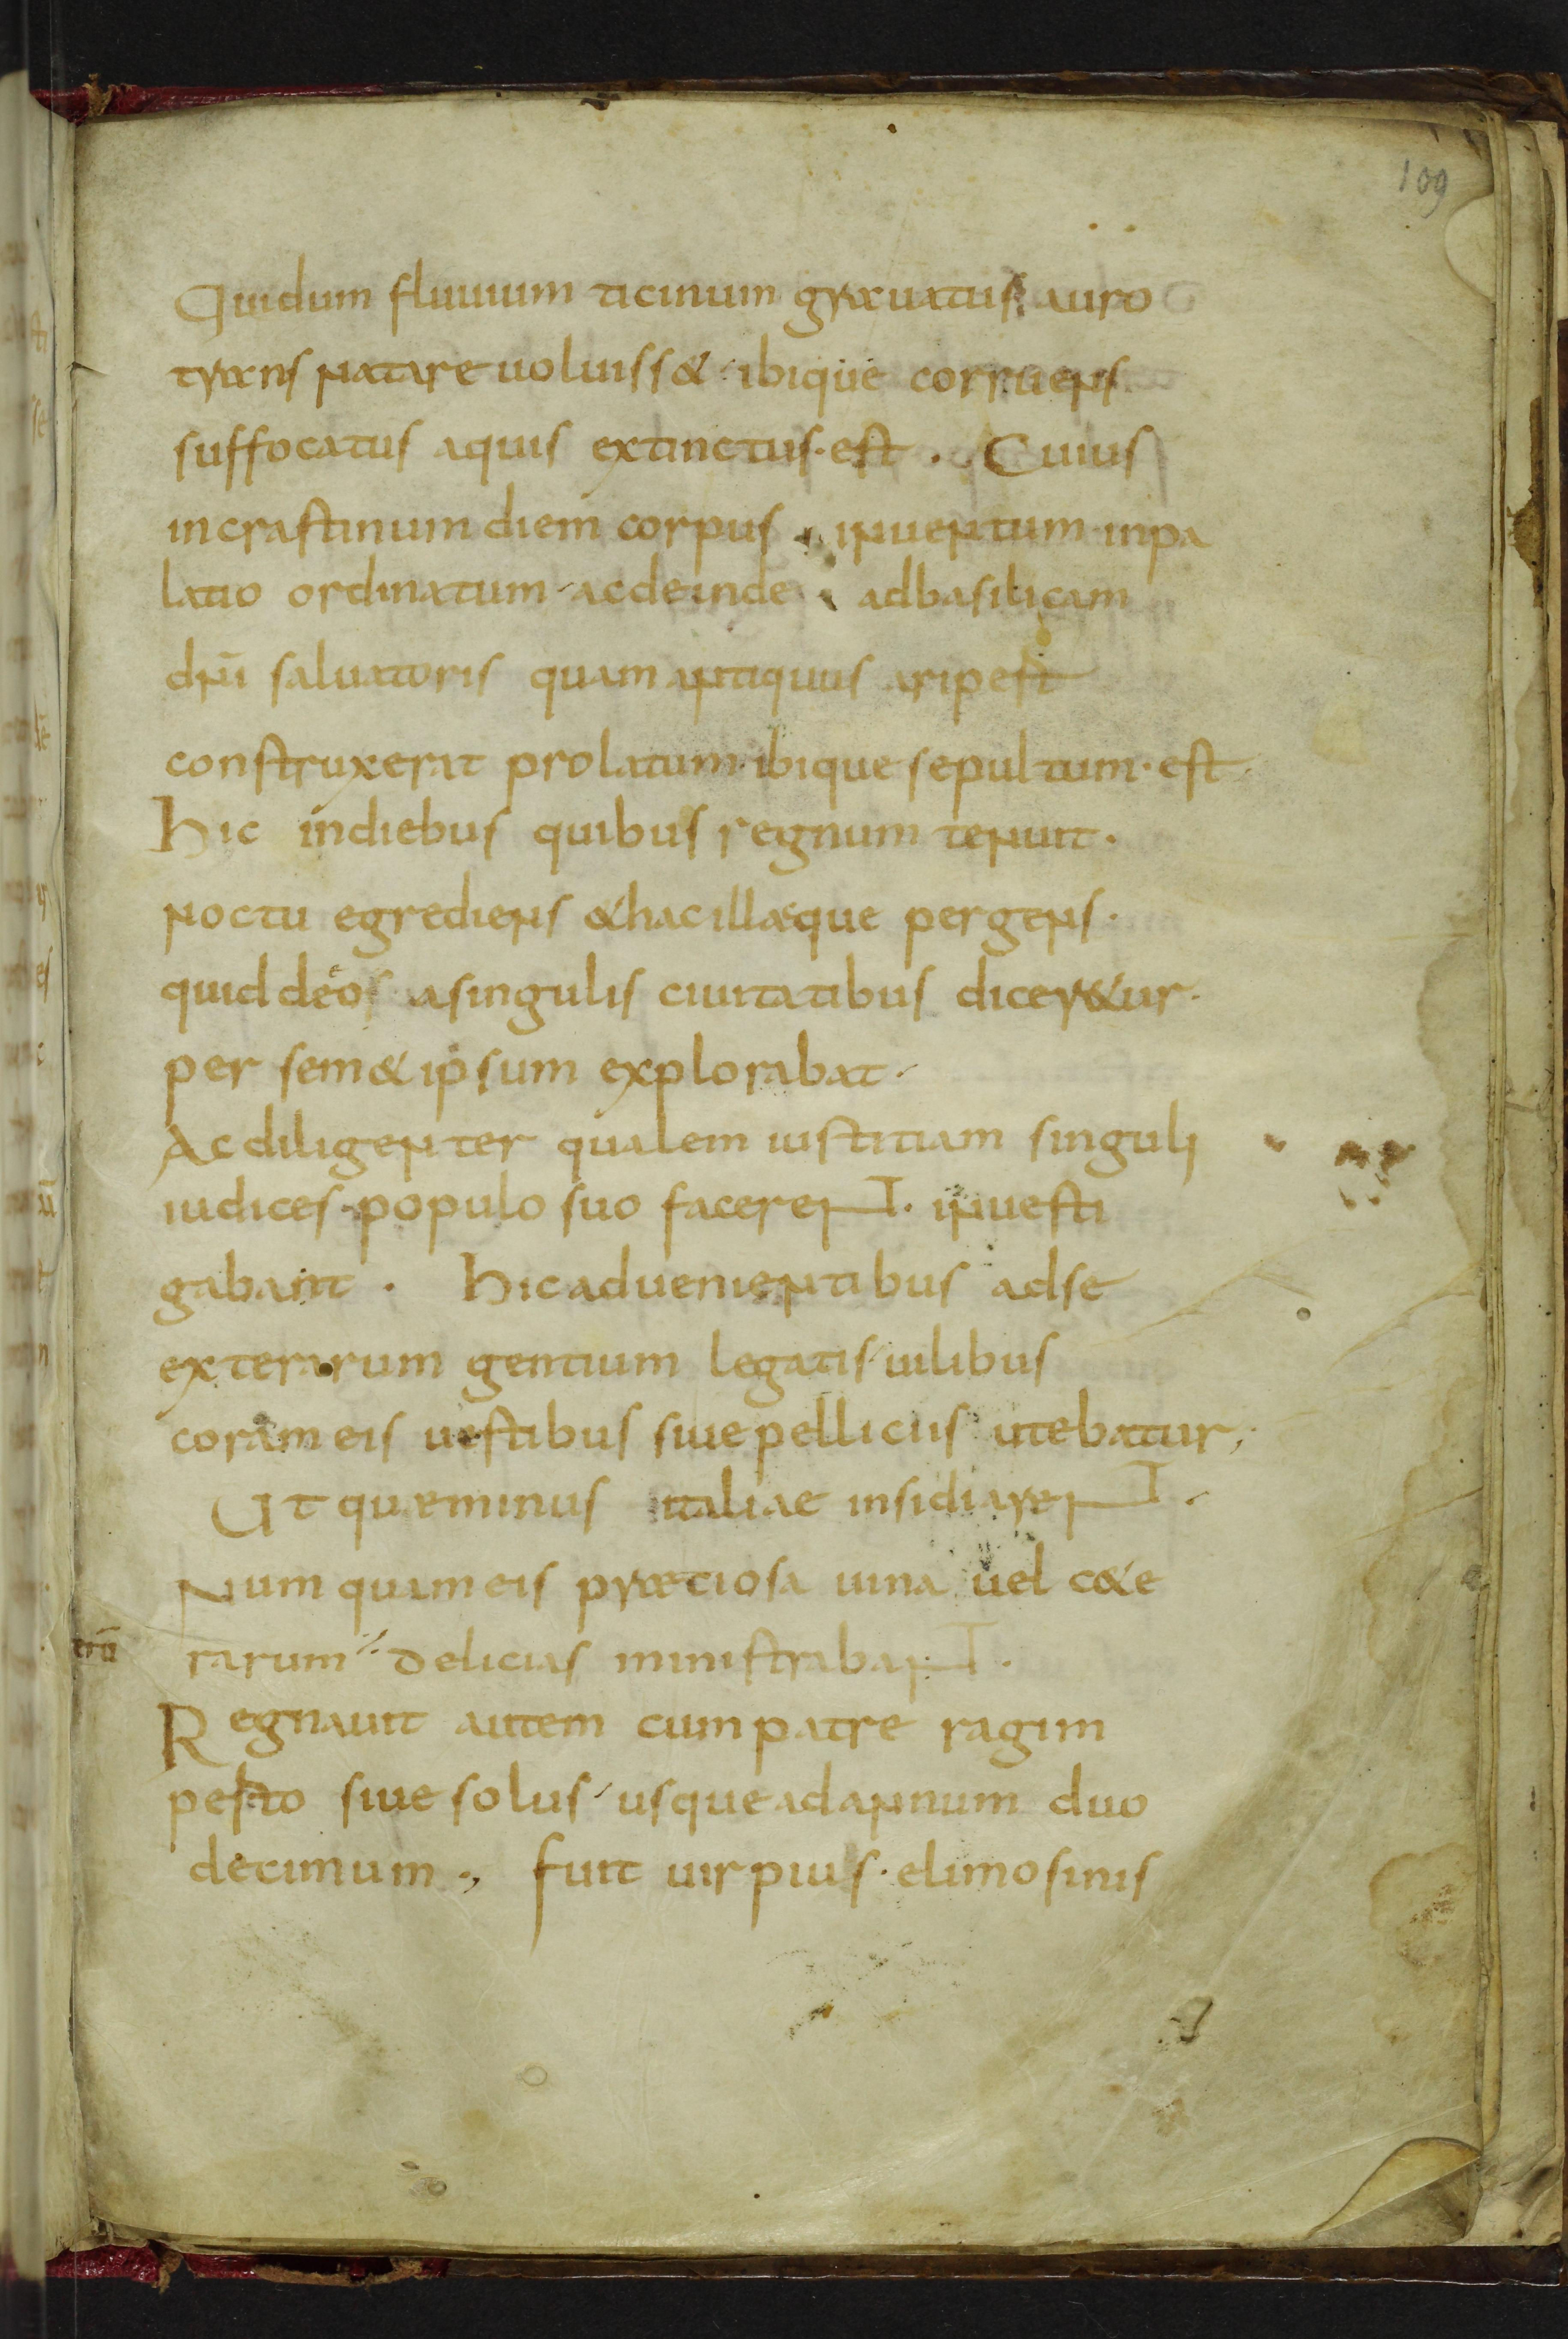 109
Qui dum fluuium ticinum grauatus auro
trans natare uoluiss& ibique corruens
suffocatus aquis extinctus est. Cuius
in crastinum diem corpus inuentum in pa
latio ordinatum ac deinde ad basilicam
dn̄i saluatoris quam antiquus aripest
construxerat prolatum ibique sepultum est
hic in diebus quibus regnum tenuit.
noctu egrediens & hac illacque pergens.
quid de eo a singulis ciuitatibus dicer&ur.
per sem& ipsum explorabat.
Ac diligenter qualem iustitiam singuli
iudices populo suo facerent. inuesti
gabant. hic aduenientibus ad se
exterarum gentium legatis uilibus
coram eis uestibus siue pelliciis utebatur,
Ut quæ minus italiae insidiarent.
Numquam eis præciosa uina uel c&e
rarum delicias ministrabant.
erū
Regnauit autem cum patre ragim
pesto siue solus usque ad annum duo
decimum., fuit uir pius. elimosinis